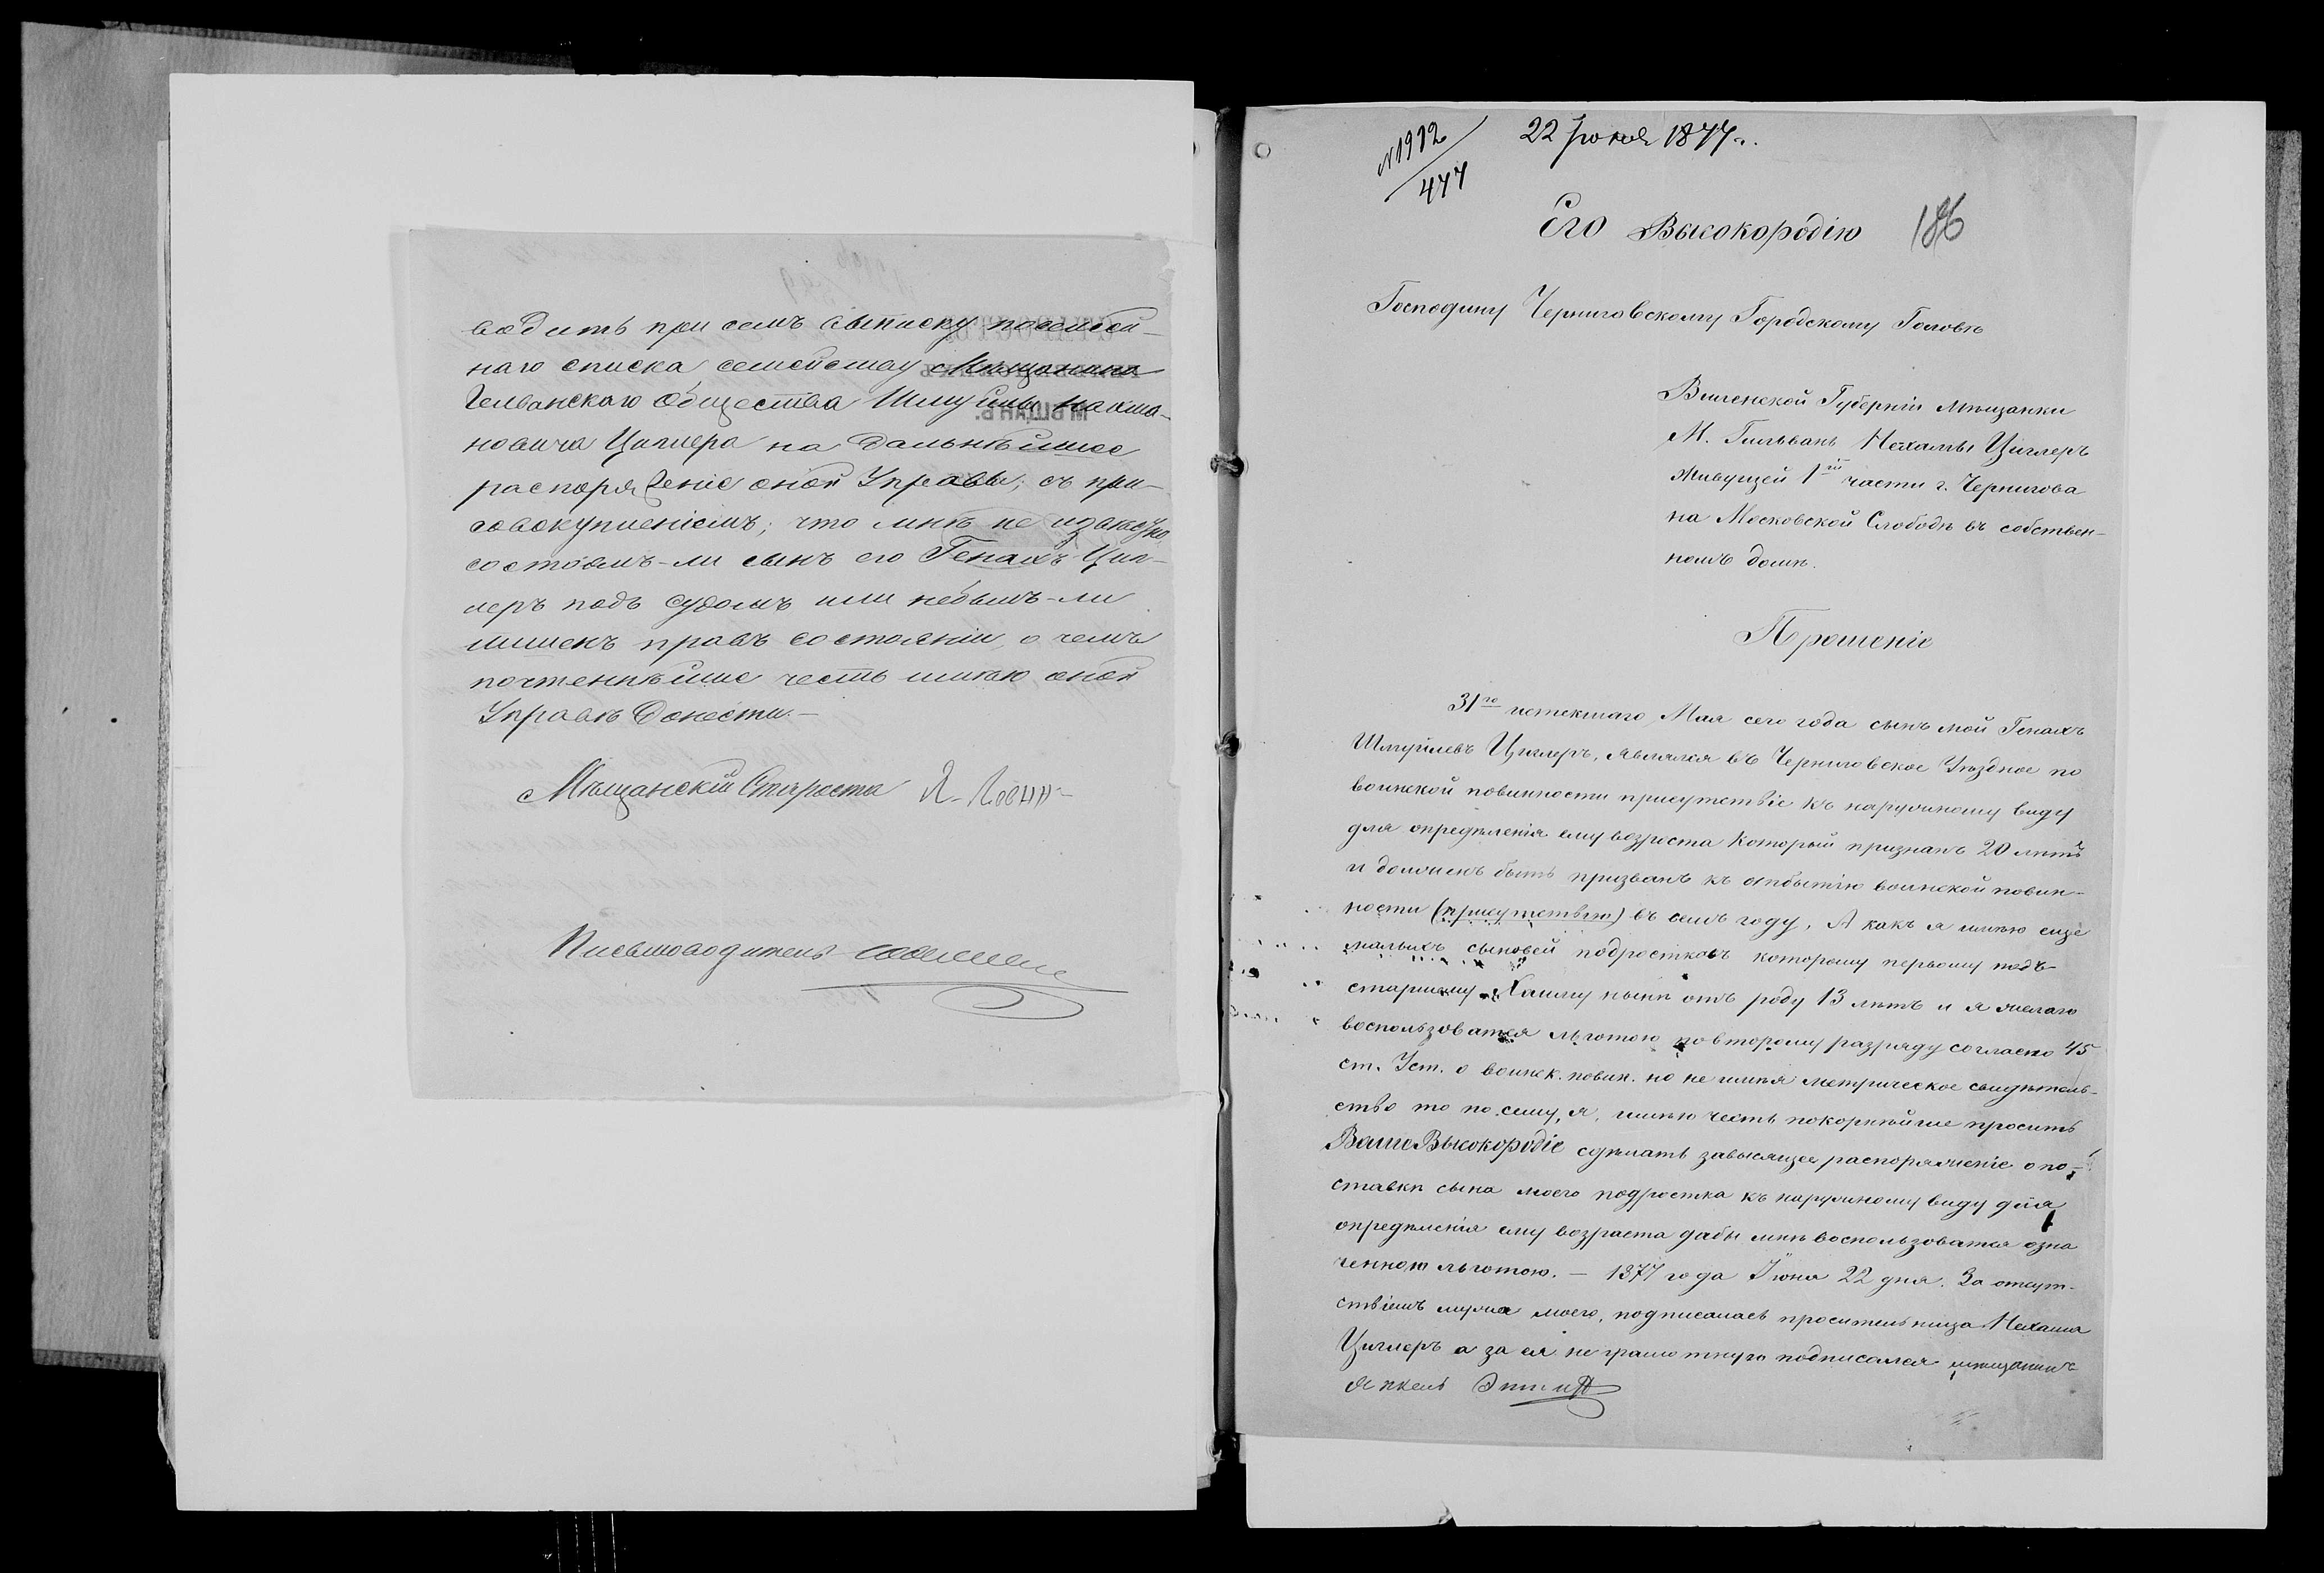 водить при семъ выписку посемей-
наго списка семейству Мѣщанина
Гелванскаго Общества Шмуйлы Нахма-
новича Циглера на дальнѣйшее
распоряженіе оной Управы; съ при-
совокупленіемъ, что мнѣ не извѣстно
состоитъ-ли сынъ его Генахъ Циг-
леръ подъ судомъ или небылъ-ли
лишенъ правъ состоянія, о чемъ
почтеннѣйше честь имѣю оной
Управѣ донести.-
Мѣщанскій Староста
Письмоводитель
СТАРОСТЫ
МѢЩАНЪ.
N 1912/477
22 Іюня 1877 г.
186
Его Высокородію
Господину Черниговскому Городскому Головѣ
Виленской Губерніи мѣщанки
М. Гильванъ Нехамы Циглеръ
живущей 1й части г. Чернигова
на Московской Слободѣ въ собствен-
номъ домѣ.
Прошеніе
31го истекшаго Мая сего года сынъ мой Генахъ
Шмуйлевъ Циглеръ, являлся въ Черниговское Уѣздное по
воинской повинности присутствіе къ наружному виду
для опредѣленія ему возроста который признанъ 20 лѣтъ
и долженъ быть призванъ къ отбытію воинской повин-
ности (присутствію) въ семъ году, А какъ я имѣю еще
малыхъ сыновей подростковъ которому первому подъ-
старшему Хаиму нынѣ отъ роду 13 лѣтъ и я желаю
воспользоватся льготою по второму разряду согласно 45
ст. Уст. о воинск. повин. но не имѣя метрическое свидѣтель-
ство то по сему, я, имѣю честь покорнѣйше просить
Ваше Высокородіе сдѣлать завысящее распоряженіе о по-
ставки сына моего подростка къ наружному виду для
опредѣленія ему возраста дабы мнѣ воспользоватся озна
ченною льготою. — 1877 года Іюня 22 дня. За отсут-
ствіемъ мужа моего, подписалась просительница Нехама
Циглеръ а за ея не грамотную подписался мѣщанинъ
Янкель